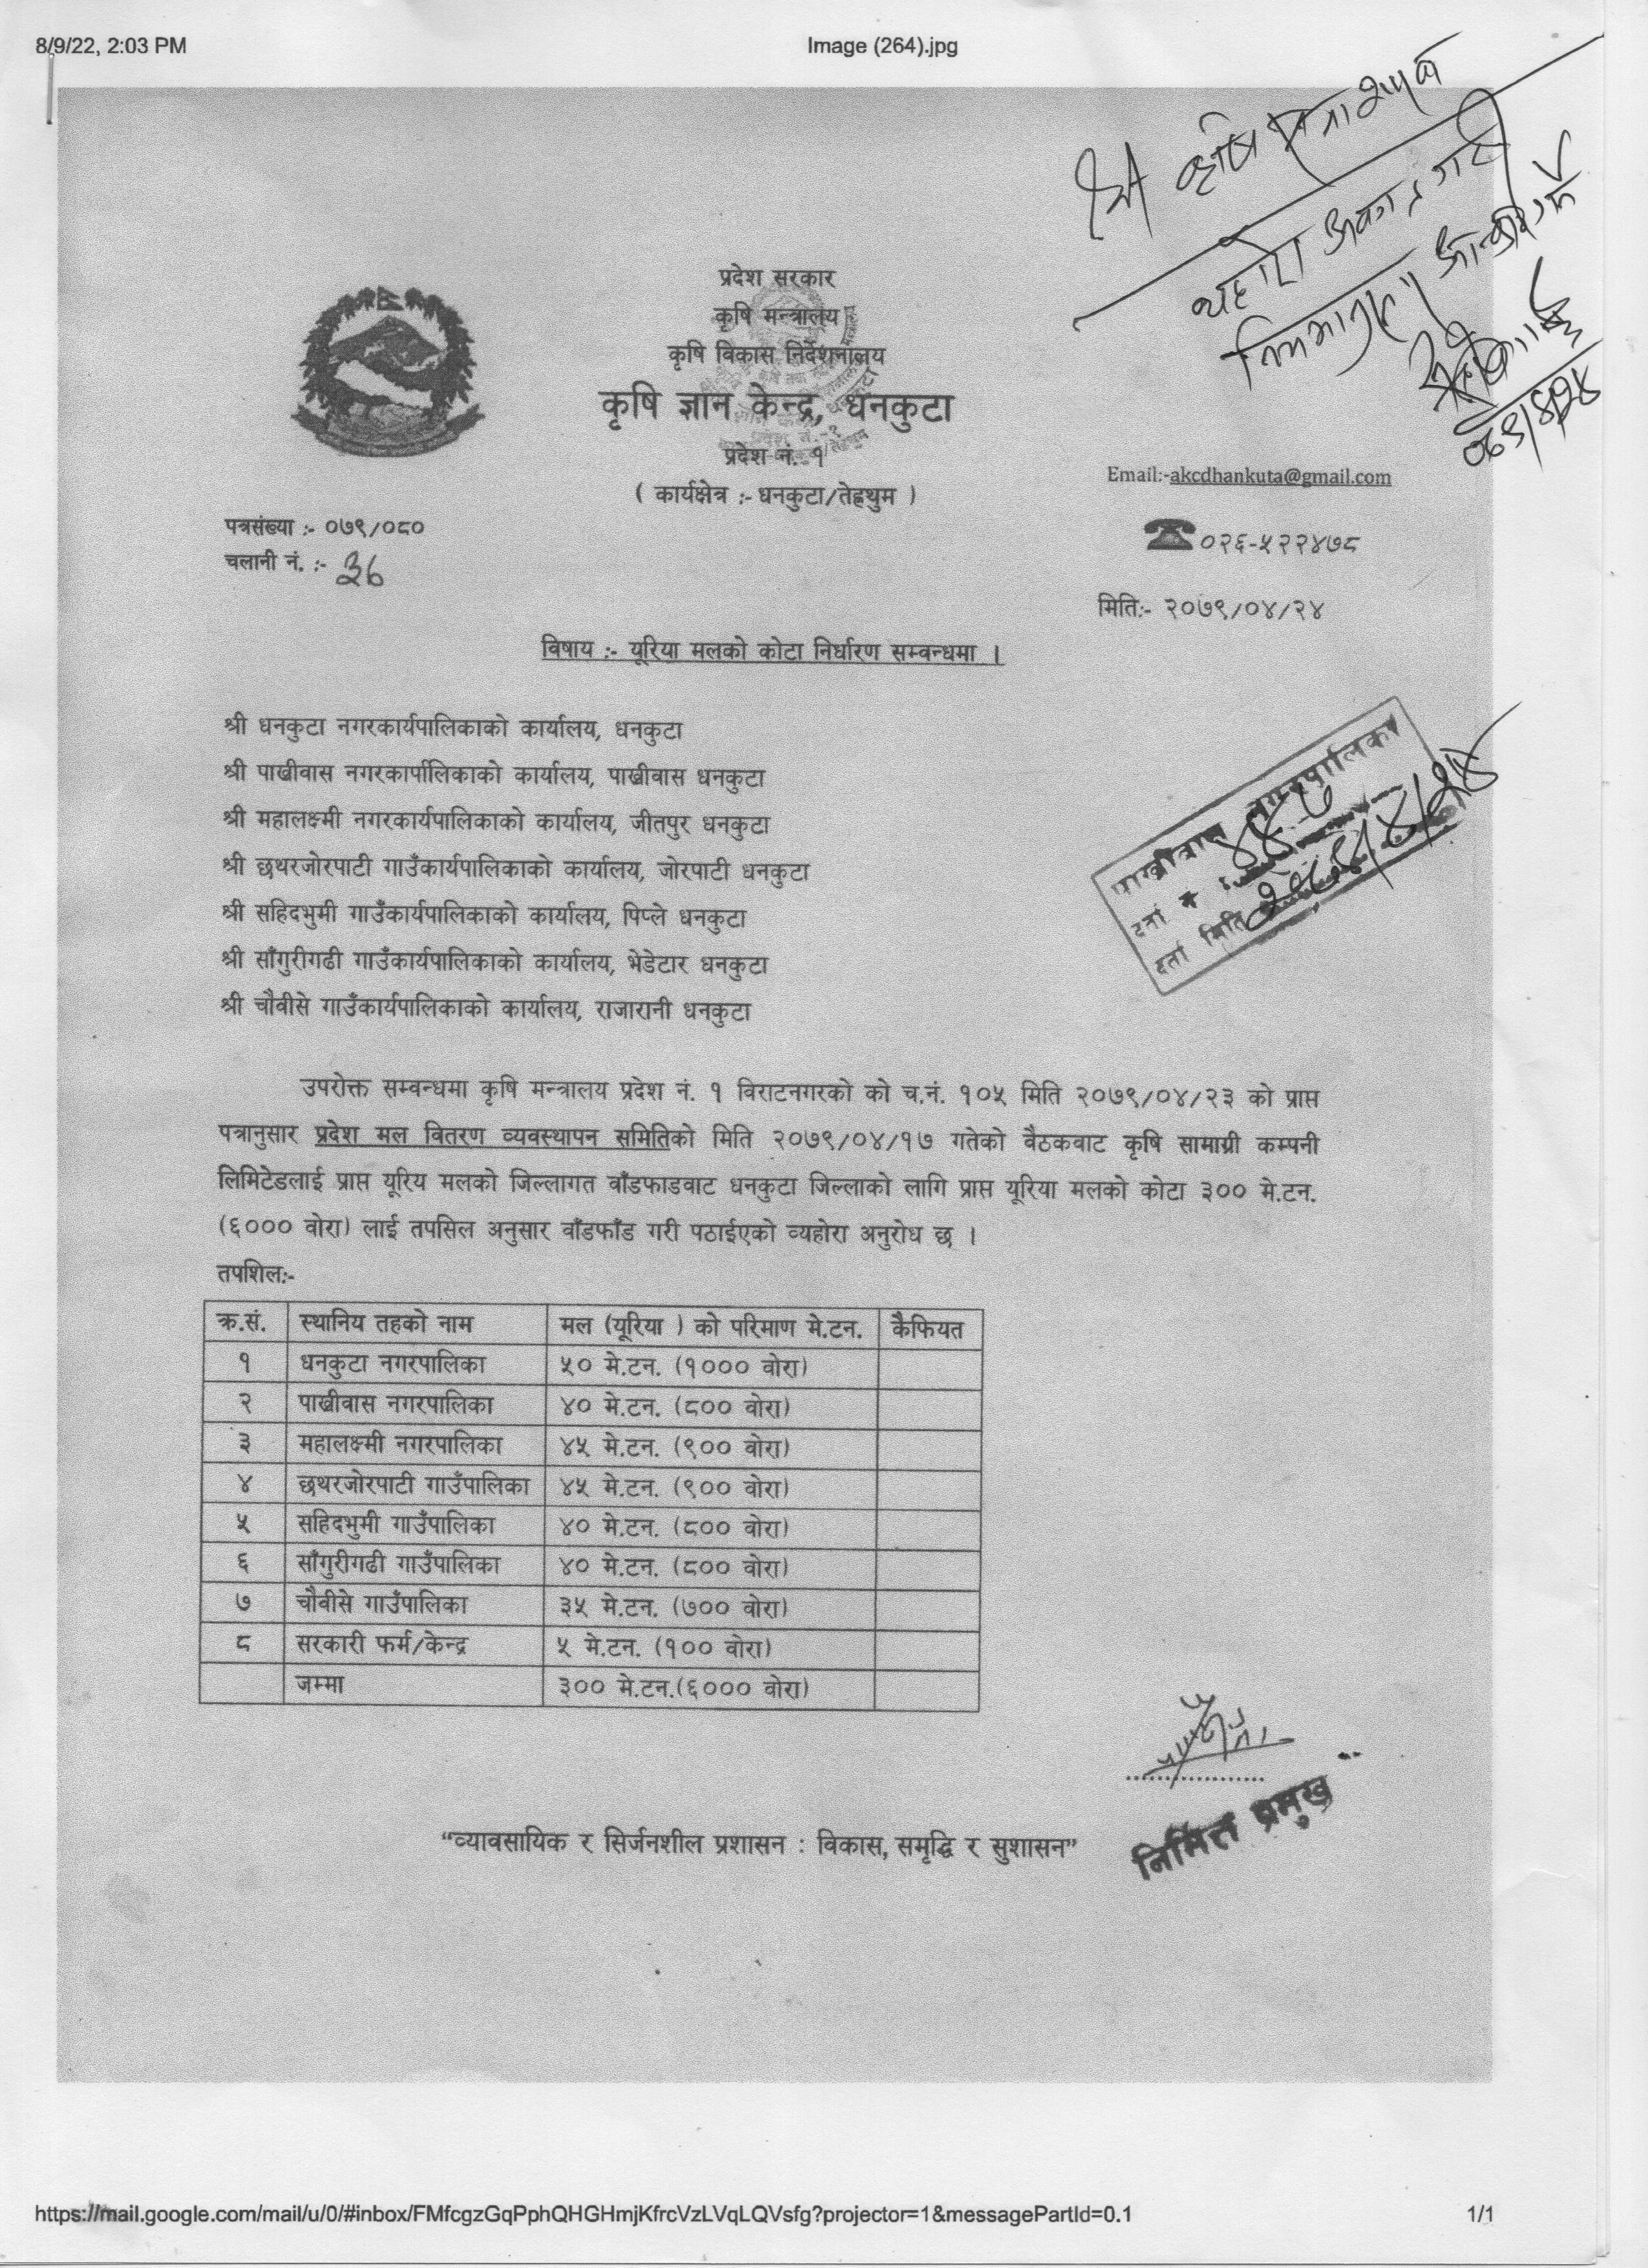 8/9/22, 2:03 PM
Image (264).jpg
श्री कृषि शाखा
प्रदेश सरकार
कृषि मन्त्रालय
कृषि विकास निर्देशनालय
कृषि ज्ञान केन्द्र, धनकुटा
प्रदेश नं. १
( कार्यक्षेत्र :- धनकुटा/तेह्रथुम )
Email:-akcdhankuta@gmail.com
पत्रसंख्या :- ०७९/०८०
०२६-५२२४७८
चलानी नं. :- ३६
मितिः- २०७९/०४/२४
विषाय :- यूरिया मलको कोटा निर्धारण सम्वन्धमा ।
श्री धनकुटा नगरकार्यपालिकाको कार्यालय, धनकुटा
श्री पाख्रीवास नगरकार्पालिकाको कार्यालय, पाख्रीवास धनकुटा
श्री महालक्ष्मी नगरकार्यपालिकाको कार्यालय, जीतपुर धनकुटा
श्री छथरजोरपाटी गाउँकार्यपालिकाको कार्यालय, जोरपाटी धनकुटा
श्री सहिदभुमी गाउँकार्यपालिकाको कार्यालय, पिप्ले धनकुटा
श्री साँगुरीगढी गाउँकार्यपालिकाको कार्यालय, भेडेटार धनकुटा
श्री चौवीसे गाउँकार्यपालिकाको कार्यालय, राजारानी धनकुटा
पाख्रीवास नगरपालिका
दर्ता नं
दर्ता मिति
उपरोक्त सम्वन्धमा कृषि मन्त्रालय प्रदेश नं. १ विराटनगरको को च.नं. १०५ मिति २०७९/०४/२३ को प्राप्त
पत्रानुसार प्रदेश मल वितरण व्यवस्थापन समितिको मिति २०७९/०४/१७ गतेको वैठकवाट कृषि सामाग्री कम्पनी
लिमिटेडलाई प्राप्त यूरिय मलको जिल्लागत वाँडफाडवाट धनकुटा जिल्लाको लागि प्राप्त यूरिया मलको कोटा ३०० मे.टन.
(६००० वोरा) लाई तपसिल अनुसार वाँडफाँड गरी पठाईएको व्यहोरा अनुरोध छ ।
तपशिलः-
क्र.सं. स्थानिय तहको नाम मल (यूरिया ) को परिमाण मे.टन. कैफियत
१ धनकुटा नगरपालिका ५० मे.टन. (१००० वोरा)
२ पाख्रीवास नगरपालिका ४० मे.टन. (८०० वोरा)
३ महालक्ष्मी नगरपालिका ४५ मे.टन. (९०० वोरा)
४ छथरजोरपाटी गाउँपालिका ४५ मे.टन. (९०० वोरा)
५ सहिदभुमी गाउँपालिका ४० मे.टन. (८०० वोरा)
६ साँगुरीगढी गाउँपालिका ४० मे.टन. (८०० वोरा)
७ चौवीसे गाउँपालिका ३५ मे.टन. (७०० वोरा)
८ सरकारी फर्म/केन्द्र ५ मे.टन. (१०० वोरा)
जम्मा ३०० मे.टन.(६००० वोरा)
निमित्त प्रमुख
“व्यावसायिक र सिर्जनशील प्रशासन : विकास, समृद्धि र सुशासन”
https://mail.google.com/mail/u/0/#inbox/FMfcgzGqPphQHGHmjKfrcVzLVqLQVsfg?projector=1&messagePartId=0.1
1/1